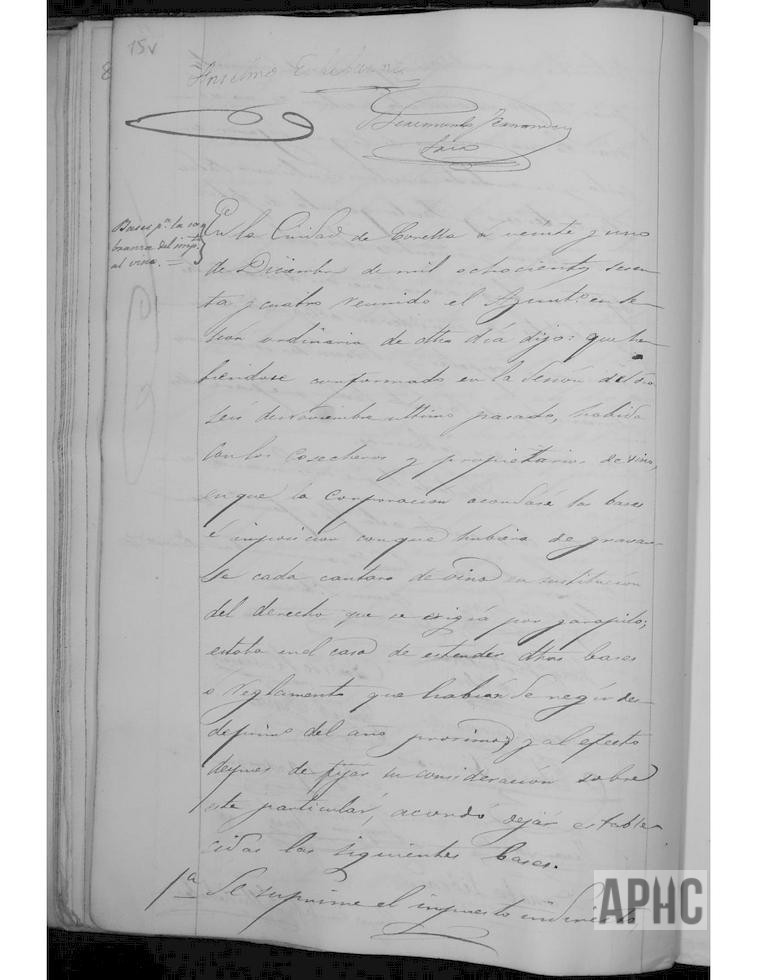 15v
Anselmo
Fernandez
Bases pa. la co
branza del impto.
al vino. =
En la Ciudad de Corella a veinte y uno
de Diciembre de mil ochocientos sesen
ta y cuatro reunido el Ayunto. en se-
sion ordinaria de dho dia dijo: que ha
biendose conformado en la Sesión del
seis de noviembre último pasado, habida
con los cosecheros y propietarios de vino,
en que la Corporacion acordase las bases
é imposición con que hubiera de gravar
se cada cantaro de vino en sustitución
del derecho que se exigia por garapito;
estaba en el caso de estender dhas bases
o Reglamento que habian de regir des-
de primo. del año procsimo, y al efecto
despues de fijar su consideración sobre
este particular, acordó dejar estable-
cidas las siguientes bases.
1a Se suprime el impuesto indirecto
APHC